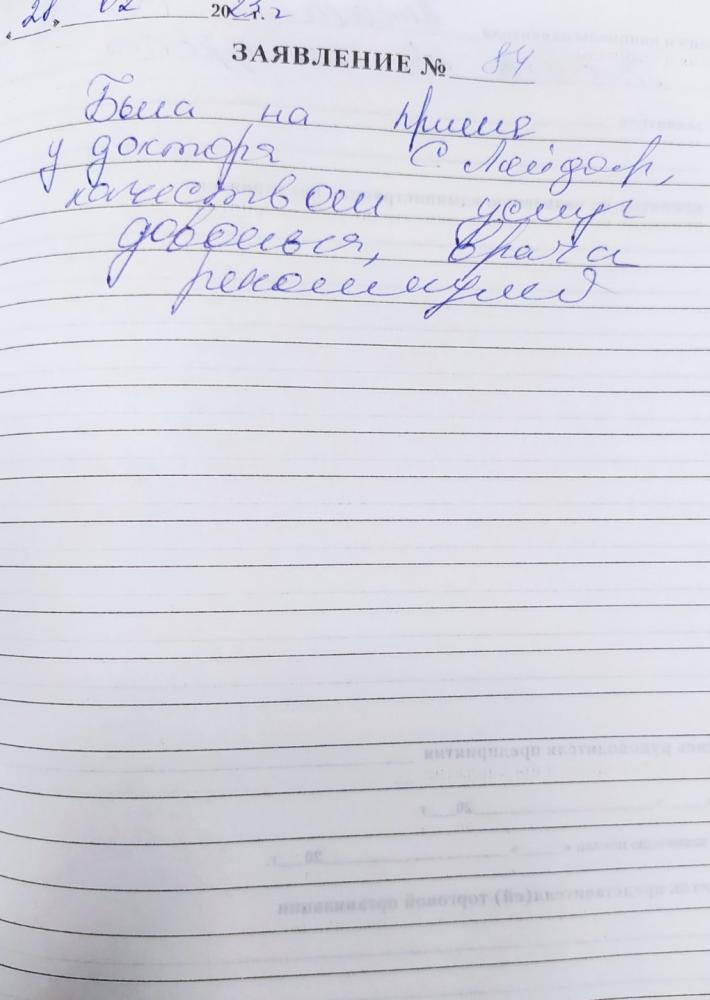 « 28 » 02 2023 г. г
ЗАЯВЛЕНИЕ № 84
Была на приеме
у доктора С. Лейдер,
качеством услуг
довольна, врача
рекомендую